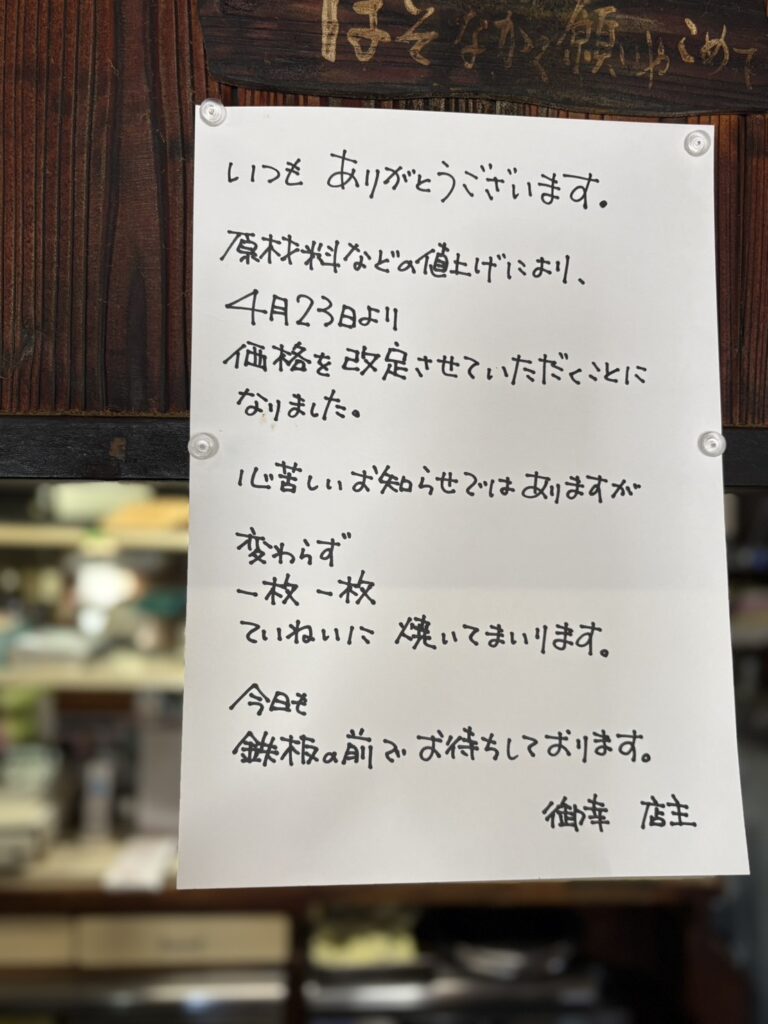 ほそなかく願いやこめて
いつも ありがとうございます。
原材料などの値上げにより、
4月23日より
価格を改定させていただくことに
なりました。
心苦しいお知らせではありますが
変わらず
一枚 一枚
ていねいに 焼いてまいります。
今日も
鉄板の前で お待ちしております。
御幸 店主